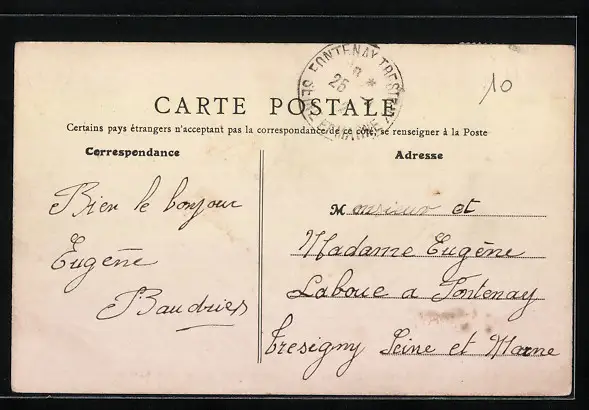 FONTENAY-TRESIGNY
25
CARTE POSTALE
10
Certains pays étrangers n'acceptant pas la correspondance de ce côté, se renseigner à la Poste
Correspondance
Adresse
Bien le bonjour
Eugène
Baudries
Monsieur et
Madame Eugène
Laboue a Fontenay
Tresigny Seine et Marne